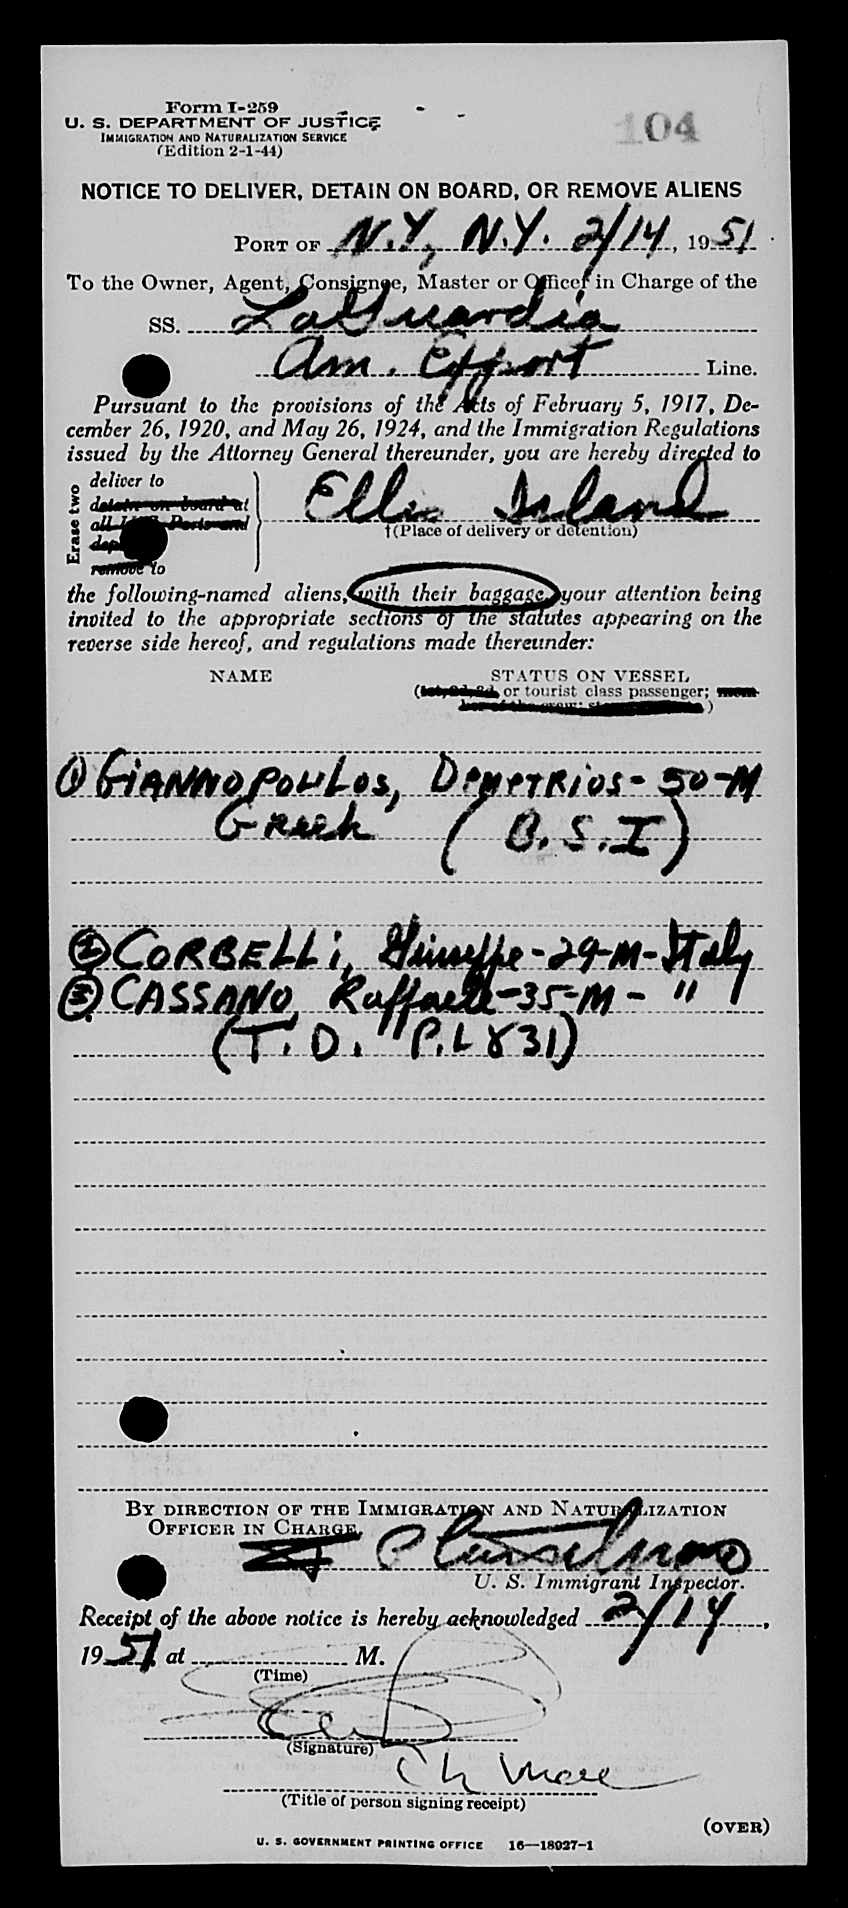 Form I-259
U. S. DEPARTMENT OF JUSTICE
IMMIGRATION AND NATURALIZATION SERVICE
(Edition 2-1-44)
104
NOTICE TO DELIVER, DETAIN ON BOARD, OR REMOVE ALIENS
PORT OF N.Y., N.Y. 2/14, 1951
To the Owner, Agent, Consignee, Master or Officer in Charge of the
SS. LaGuardia
Am. Export Line.
Pursuant to the provisions of the Acts of February 5, 1917, De-
cember 26, 1920, and May 26, 1924, and the Immigration Regulations
issued by the Attorney General thereunder, you are hereby directed to
Erase two
deliver to
detain on board at
all U.S. Ports and
remove to
Ellis Island
†(Place of delivery or detention)
the following-named aliens, with their baggage, your attention being
invited to the appropriate sections of the statutes appearing on the
reverse side hereof, and regulations made thereunder:
NAME STATUS ON VESSEL
(1st, 2d, 3d, or tourist class passenger; mem-
ber of the crew;)
① GIANNOPOULOS, DEMETRIOS - 50-M
Greek (B.S.I)
② CORBELLi, Giuseppe - 29-M-Italy
③ CASSANO, Raffaele - 35-M - "
(T.D. P.L 831)
BY DIRECTION OF THE IMMIGRATION AND NATURALIZATION
OFFICER IN CHARGE,
U. S. Immigrant Inspector.
Receipt of the above notice is hereby acknowledged 2/14,
1951, at M.
(Time)
(Signature)
(Title of person signing receipt)
(OVER)
U. S. GOVERNMENT PRINTING OFFICE 16—18927-1